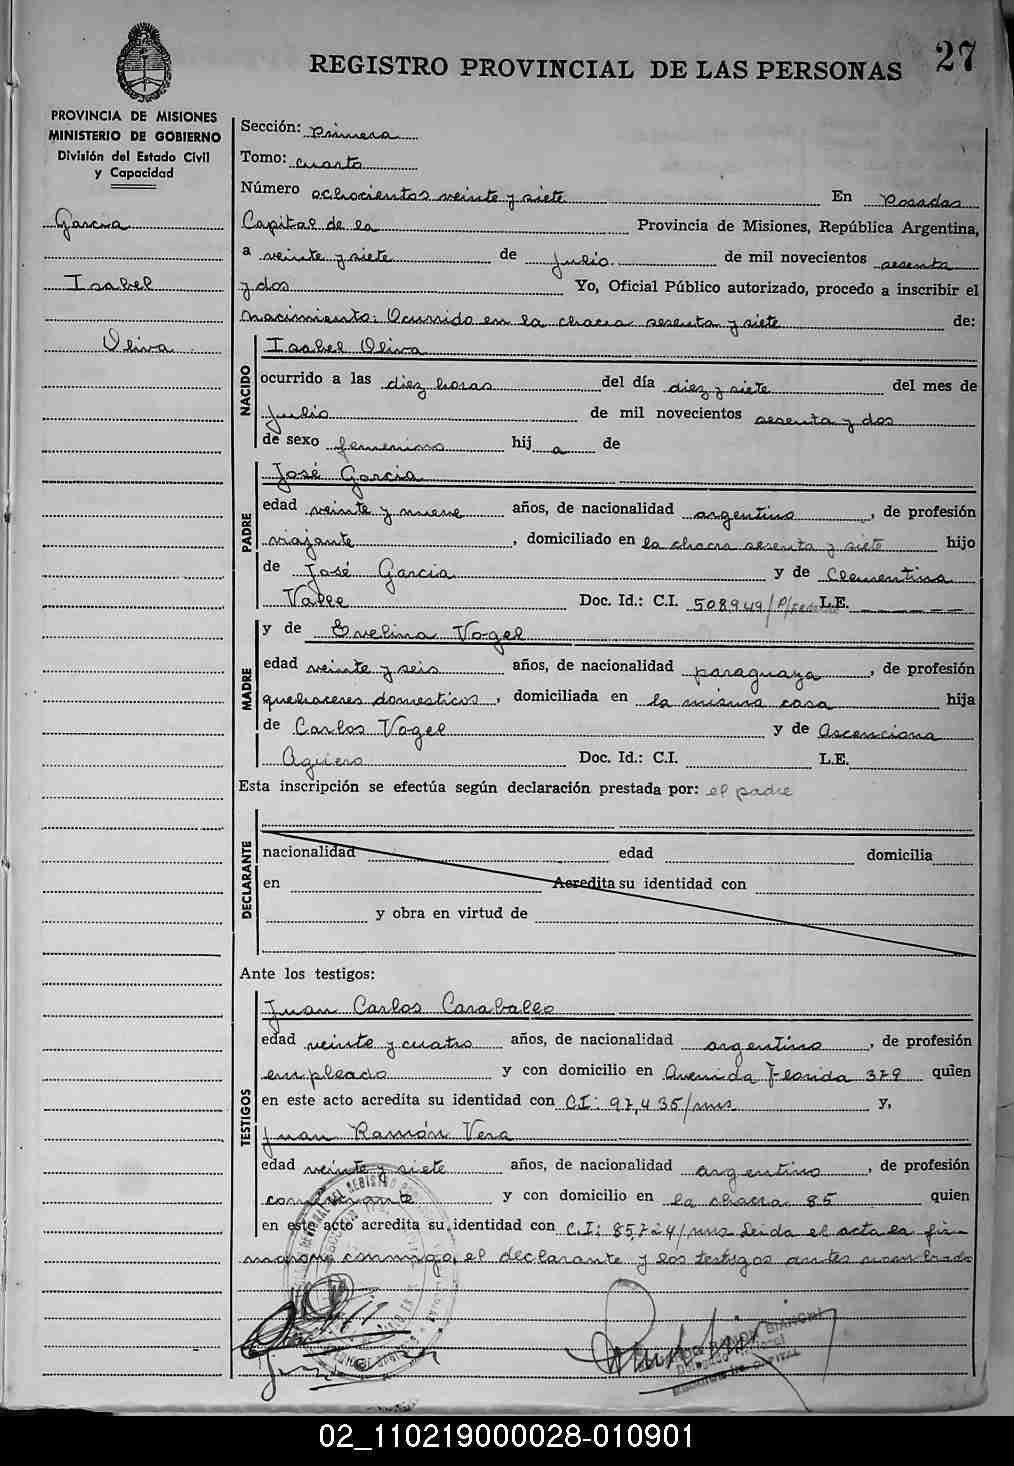 27
REGISTRO PROVINCIAL DE LAS PERSONAS
PROVINCIA DE MISIONES
MINISTERIO DE GOBIERNO
División del Estado Civil
y Capacidad
Garcia
Isabel
Oliva
Sección: Primera
Tomo: cuarto
Número ochocientos veinte y siete En Posadas
Capital de la Provincia de Misiones, República Argentina,
a veinte y siete de julio de mil novecientos sesenta
y dos Yo, Oficial Público autorizado, procedo a inscribir el
nacimiento: Ocurrido en la chacra sesenta y siete de:
NACIDO
Isabel Oliva
ocurrido a las diez horas del día diez y siete del mes de
julio de mil novecientos sesenta y dos
de sexo femenino hij a de
PADRE
José Garcia
edad veinte y nueve años, de nacionalidad argentino, de profesión
viajante, domiciliado en la chacra sesenta y siete hijo
de José Garcia y de Clementina
Valle Doc. Id.: C.I. 508949/P/ L.E.
MADRE
y de Evelina Vogel
edad veinte y seis años, de nacionalidad paraguaya, de profesión
quehaceres domesticos, domiciliada en la misma casa hija
de Carlos Vogel y de Ascenciona
Aguero Doc. Id.: C.I. L.E.
Esta inscripción se efectúa según declaración prestada por: el padre
DECLARANTE
nacionalidad edad domicilia
en Acredita su identidad con
y obra en virtud de
Ante los testigos:
TESTIGOS
Juan Carlos Caraballo
edad veinte y cuatro años, de nacionalidad argentino, de profesión
empleado y con domicilio en Avenida Florida 379 quien
en este acto acredita su identidad con C.I: 97,435/mns y,
Juan Ramón Vera
edad veinte y siete años, de nacionalidad argentino, de profesión
comerciante y con domicilio en la chacra 85 quien
en este acto acredita su identidad con C.I: 85,724/mns Leida el acta la fir-
maron conmigo, el declarante y los testigos antes nombrado
BIANCHI
CAPITAL
02_110219000028-010901